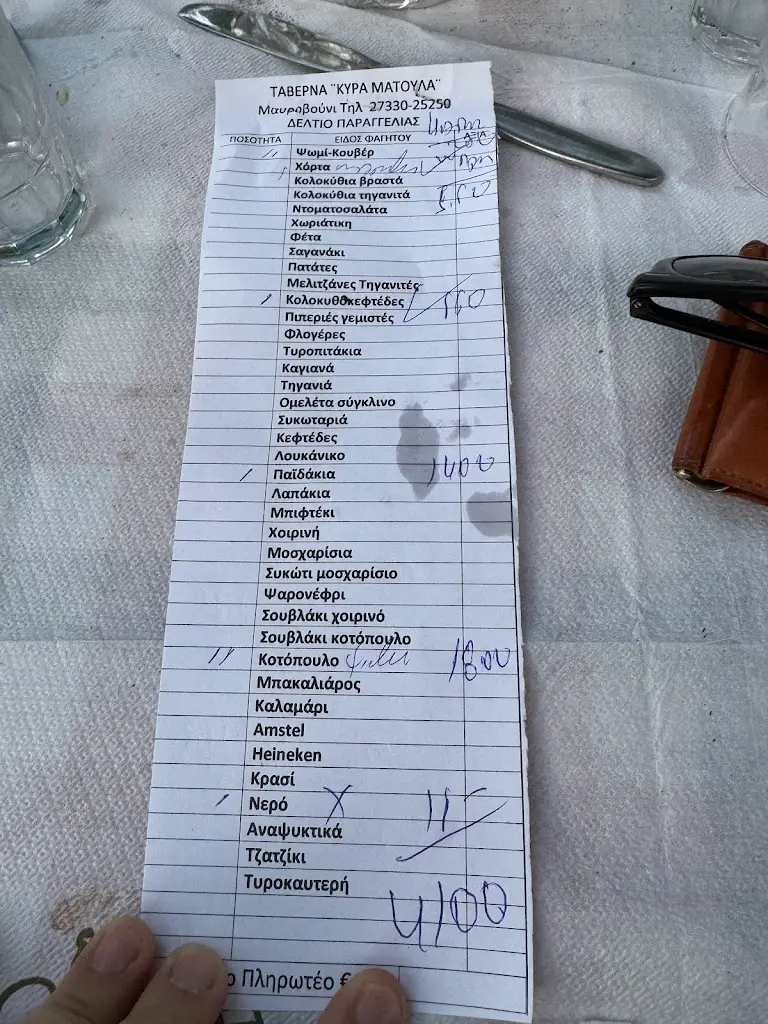 ΤΑΒΕΡΝΑ ¨ΚΥΡΑ ΜΑΤΟΥΛΑ¨
Μαυροβούνι Τηλ 27330-25250
ΔΕΛΤΙΟ ΠΑΡΑΓΓΕΛΙΑΣ
ΠΟΣΟΤΗΤΑ ΕΙΔΟΣ ΦΑΓΗΤΟΥ ΑΞΙΑ
Ψωμί-Κουβέρ
Χόρτα
Κολοκύθια βραστά
Κολοκύθια τηγανιτά
Ντοματοσαλάτα
Χωριάτικη
Φέτα
Σαγανάκι
Πατάτες
Μελιτζάνες Τηγανιτές
Κολοκυθοκεφτέδες
Πιπεριές γεμιστές
Φλογέρες
Τυροπιτάκια
Καγιανά
Τηγανιά
Ομελέτα σύγκλινο
Συκωταριά
Κεφτέδες
Λουκάνικο
Παϊδάκια 1400
Λαπάκια
Μπιφτέκι
Χοιρινή
Μοσχαρίσια
Συκώτι μοσχαρίσιο
Ψαρονέφρι
Σουβλάκι χοιρινό
Σουβλάκι κοτόπουλο
Κοτόπουλο 1800
Μπακαλιάρος
Καλαμάρι
Amstel
Heineken
Κρασί
Νερό X
Αναψυκτικά
Τζατζίκι
Τυροκαυτερή
4100
Πληρωτέο €